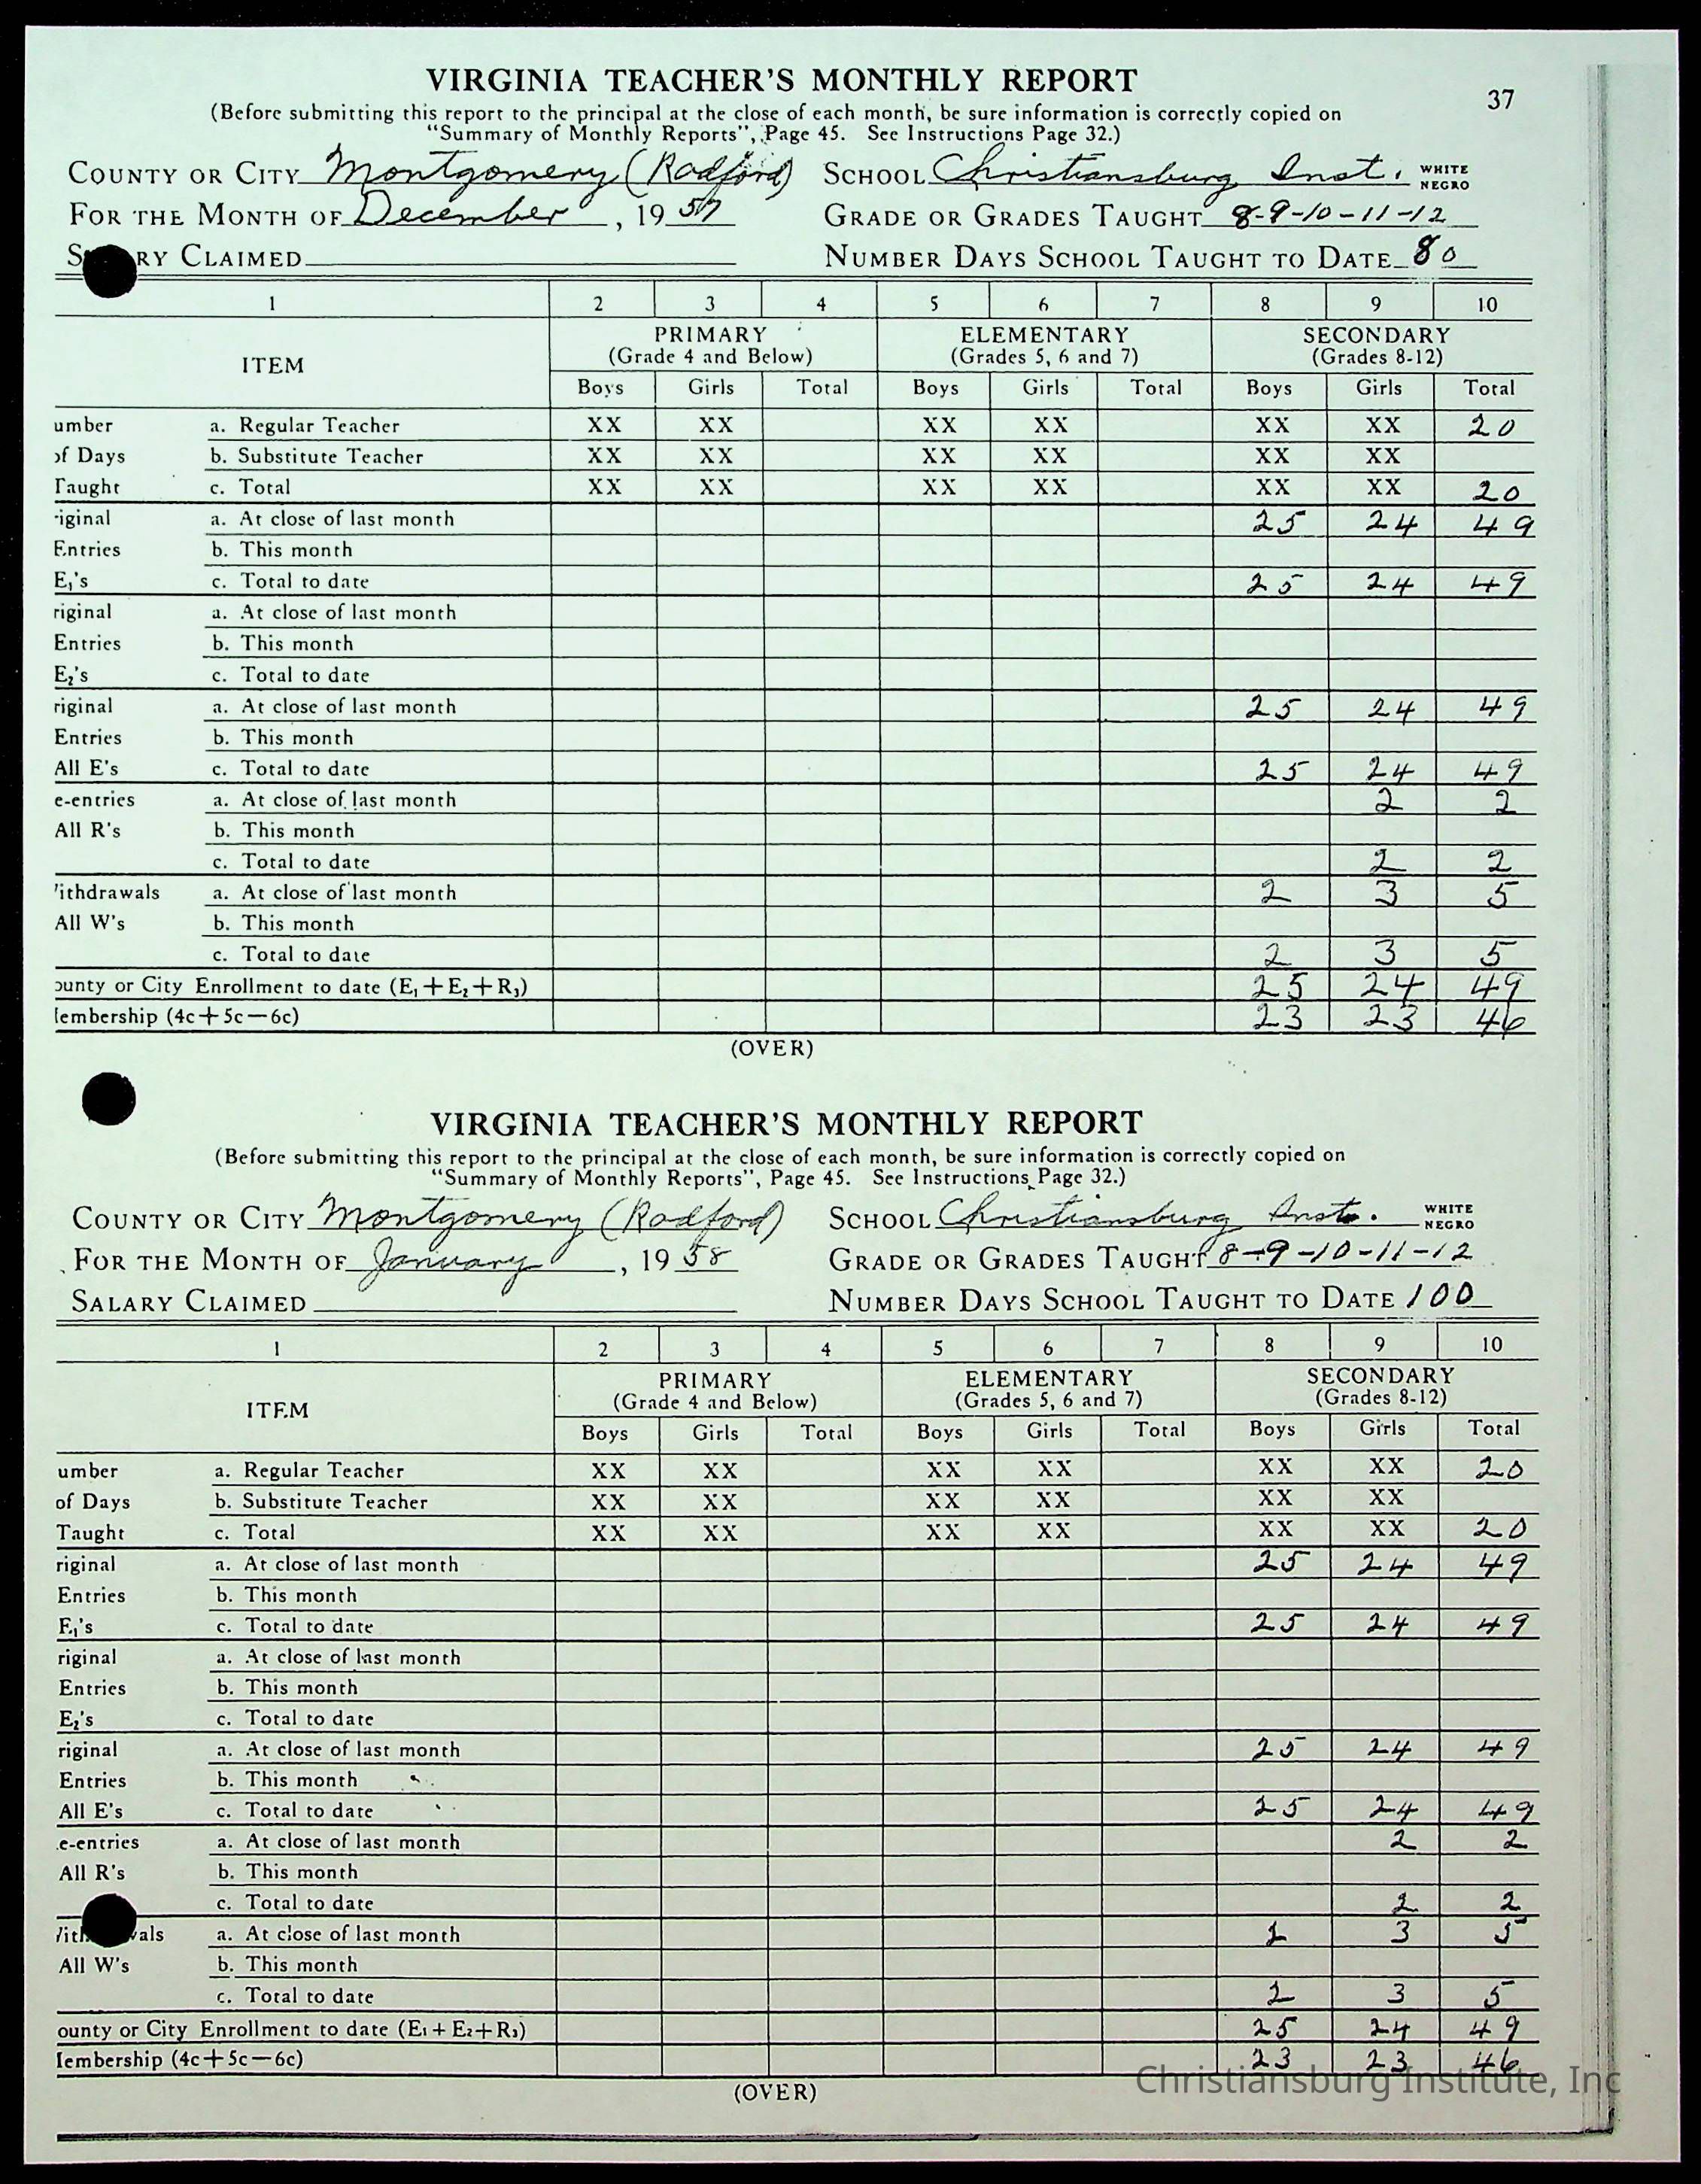 VIRGINIA TEACHER'S MONTHLY REPORT
37
(Before submitting this report to the principal at the close of each month, be sure information is correctly copied on
"Summary of Monthly Reports", Page 45. See Instructions Page 32.)
COUNTY OR CITY Montgomery (Radford) SCHOOL Christiansburg Inst. WHITE NEGRO
FOR THE MONTH OF December, 1957 GRADE OR GRADES TAUGHT 8-9-10-11-12
S RY CLAIMED NUMBER DAYS SCHOOL TAUGHT TO DATE 80
1 2 3 4 5 6 7 8 9 10
ITEM PRIMARY (Grade 4 and Below) ELEMENTARY (Grades 5, 6 and 7) SECONDARY (Grades 8-12)
Boys Girls Total Boys Girls Total Boys Girls Total
umber a. Regular Teacher XX XX XX XX XX XX 20
of Days b. Substitute Teacher XX XX XX XX XX XX
Taught c. Total XX XX XX XX XX XX 20
riginal a. At close of last month 25 24 49
Entries b. This month
E₁'s c. Total to date 25 24 49
riginal a. At close of last month
Entries b. This month
E₂'s c. Total to date
riginal a. At close of last month 25 24 49
Entries b. This month
All E's c. Total to date 25 24 49
e-entries a. At close of last month 2 2
All R's b. This month
c. Total to date 2 2
ithdrawals a. At close of last month 2 3 5
All W's b. This month
c. Total to date 2 3 5
ounty or City Enrollment to date (E₁+E₂+R₃) 25 24 49
lembership (4c+5c—6c) 23 23 46
(OVER)
VIRGINIA TEACHER'S MONTHLY REPORT
(Before submitting this report to the principal at the close of each month, be sure information is correctly copied on
"Summary of Monthly Reports", Page 45. See Instructions Page 32.)
COUNTY OR CITY Montgomery (Radford) SCHOOL Christiansburg Inst. WHITE NEGRO
FOR THE MONTH OF January, 1958 GRADE OR GRADES TAUGHT 8-9-10-11-12
SALARY CLAIMED NUMBER DAYS SCHOOL TAUGHT TO DATE 100
1 2 3 4 5 6 7 8 9 10
ITEM PRIMARY (Grade 4 and Below) ELEMENTARY (Grades 5, 6 and 7) SECONDARY (Grades 8-12)
Boys Girls Total Boys Girls Total Boys Girls Total
umber a. Regular Teacher XX XX XX XX XX XX 20
of Days b. Substitute Teacher XX XX XX XX XX XX
Taught c. Total XX XX XX XX XX XX 20
riginal a. At close of last month 25 24 49
Entries b. This month
E₁'s c. Total to date 25 24 49
riginal a. At close of last month
Entries b. This month
E₂'s c. Total to date
riginal a. At close of last month 25 24 49
Entries b. This month
All E's c. Total to date 25 24 49
e-entries a. At close of last month 2 2
All R's b. This month
c. Total to date 2 2
vals a. At close of last month 2 3 5
All W's b. This month
c. Total to date 2 3 5
ounty or City Enrollment to date (E₁+E₂+R₃) 25 24 49
lembership (4c+5c—6c) 23 23 46
(OVER)
Christiansburg Institute, Inc